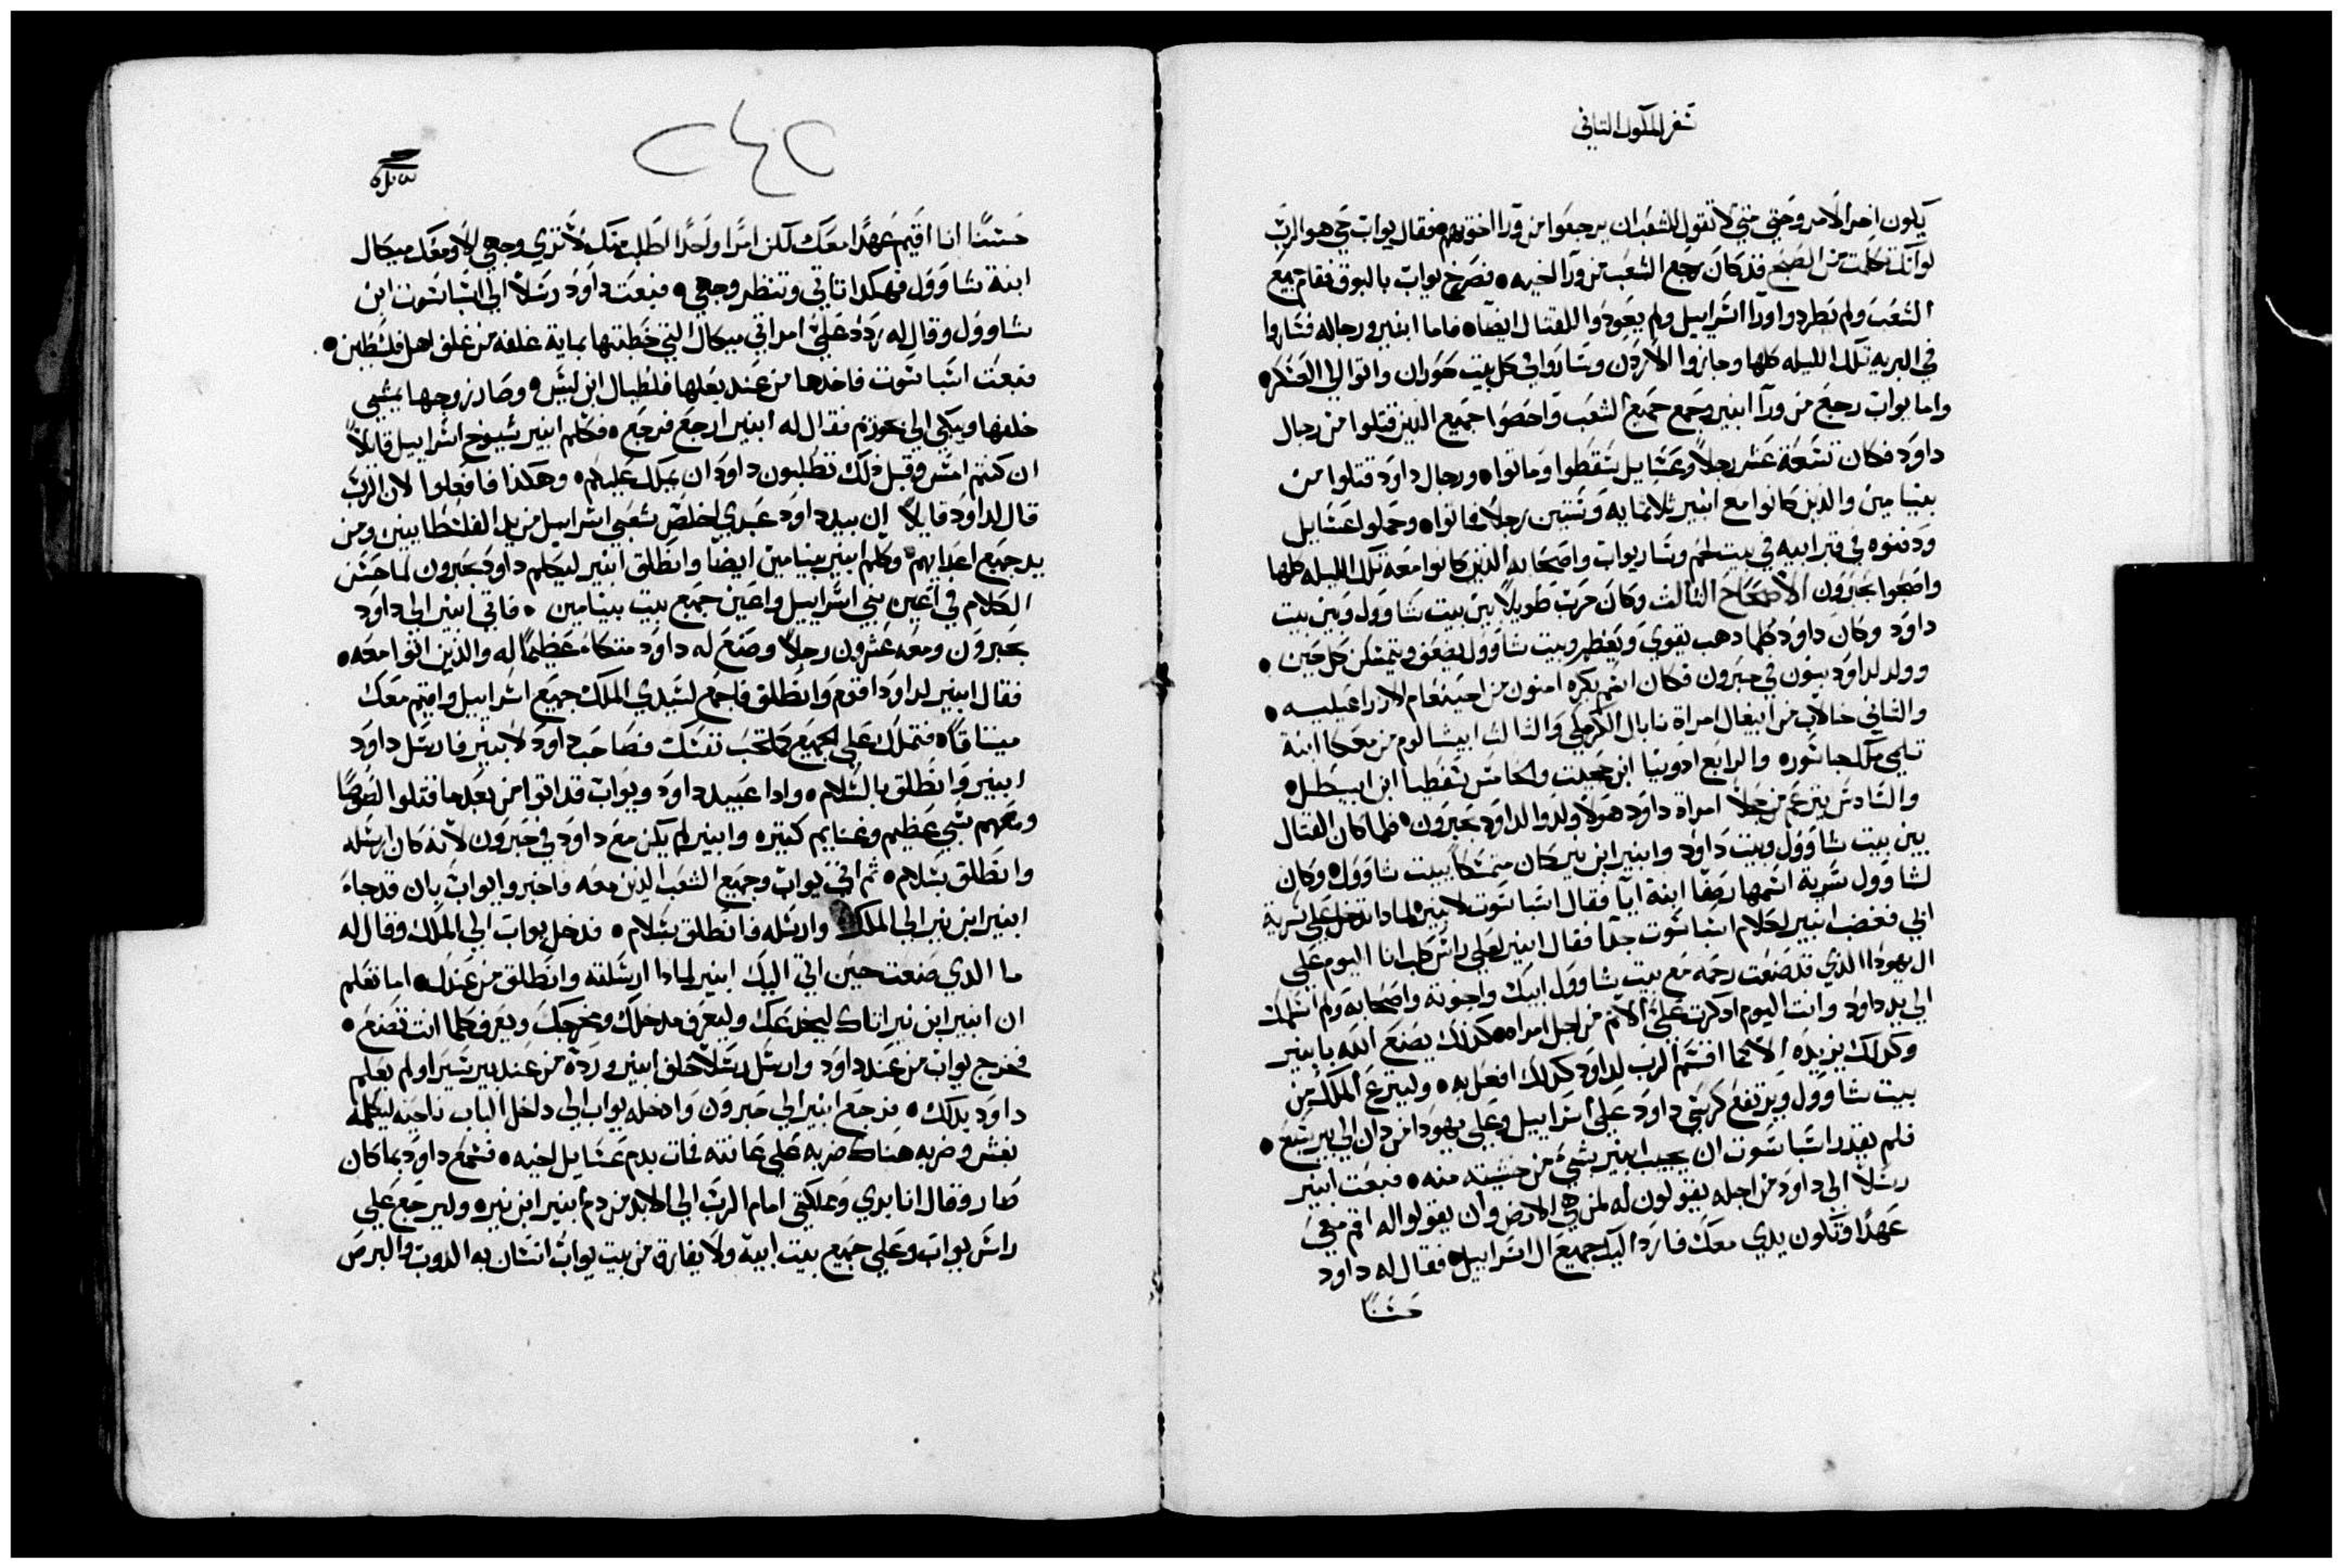 سفر الملوك التاني
يكون اخر الامر وحتى متى لا تقول للشعب ان يرجعوا من ورا اخوتهم فقال يواب حي هو الرب
لو انك تكلمت من الصبح قد كان رجع الشعب من ورا اخيه فصرخ يواب بالبوق فقام جميع
الشعب ولم يطردوا ورآ اسراييل ولم يعودوا للقتال ايضاً فاما ابنير ورجاله فساروا
في البريه تلك الليله كلها وجازوا الاردن وساروا في كل بيت حوران واتوا الى العسكر
واما يواب رجع من ورآ ابنير وجمع جميع الشعب واحصوا جميع الذين قتلوا من رجال
داود فكان تسعة عشر رجلاً وعسايل سقطوا وماتوا ورجال داود قتلوا من
بنيامين والذين كانوا مع ابنير ثلاثمايه وستين رجلاً فماتوا وحملوا عسايل
ودفنوه في قبر ابيه في بيت لحم وسار يواب واصحابه الذين كانوا معه تلك الليله كلها
واصبحوا بحبرون الاصحاح التالث وكان حرب طويلاً بين بيت شاوول وبين بيت
داود وكان داود كلما دهب يقوي ويعظم وبيت شاوول يضعف ويتمسكن كل حين
وولد لداود بنون في حبرون فكان ابنهم بكره امنون من احينعام الازراعيليه
والتاني خالاب من ابيغال امراة نابال الكرملي والتالت ابيشالوم من معكا ابنة
تلمي ملك جاشوره والرابع ادونيا ابن حجيت والخامس سفطيا ابن ابيطل
والسادس يترعم من جلا امراة داود هولا ولدوا لداود بحبرون فلما كان القتال
بين بيت شاوول وبيت داود وابنير ابن نير كان متمسكاً ببيت شاوول وكان
لشاوول سرية اسمها رصفا ابنة ايا فقال اشباشوت لابنير لمادا تدخل على سرية
ابي فغضب ابنير لكلام اشباشوت جداً فقال ابنير لعلي راس كلب انا اليوم على
ال يهودا الذي قد صنعت رحمة مع بيت شاوول ابيك واخوته واصحابه ولم اسلمك
الي يد داود وانت اليوم ادكرت علي الاتم من اجل امراه كذلك يصنع الله بابنير
وكذلك يزيده الا كما اقسم الرب لداود كدلك افعل به ولينزع الملك من
بيت شاوول ويرتفع كرسي داود علي اسراييل وعلي يهودا من دان الي بير سبع
فلم يقدر اشباشوت ان يجيب ابنير بشي من خشيته منه فبعت ابنير
رسلاً الي داود من اجله يقولون له لمن هي الارض وان يقولوا له اقم معي
عهداً وتكون يدي معك فارد اليك جميع ال اسراييل فقال له داود
حسناً
٢٤٢
حسناً انا اقيم عهداً معك لكن امراً واحداً اطلب منك لا تري وجهي الا ومعك ميكال
ابنة شاوول فهكدا تاتي وتنظر وجهي فبعت داود رسلاً الي اشباشوت ابن
شاوول وقال له ردد علي امراتي ميكال التي خطبتها بماية غلفه من غلف اهل فلسطين
فبعت اشباشوت فاخدها من عند بعلها فلطيال ابن ليس وصار زوجها يمشي
خلفها ويبكي الي بحوزيم فقال له ابنير ارجع فرجع فكلم ابنير شيوخ اسراييل قايلاً
ان كنتم امس وقبل ذلك تطلبون داود ان يملك عليكم وهكذا فافعلوا لان الرب
قال لداود قايلاً ان بيد داود عبدي اخلص شعبي اسراييل من يد الفلسطانيين ومن
يد جميع اعدايهم وكلم ابنير بنيامين ايضاً وانطلق ابنير ليكلم داود بحبرون لما حسن
الكلام في اعين بني اسراييل واعين جميع بيت بنيامين فاتي ابنير الي داود
بحبرون ومعه عشرون رجلاً وصنع له داود متكاء عظيماً له والذين اتوا معه
فقال ابنير لداود اقوم وانطلق فاجمع لسيدي الملك جميع اسراييل واقيم معك
ميتاقاً فتملك علي الجميع كما تحب نفسك فصاحب داود لابنير فارسل داود
ابنير وانطلق بالسلام وادا عبيد داود ويواب قد اتوا من بعد ما قتلوا لصوصاً
ومعهم شي عظيم وغنايم كتيره وابنير لم يكن مع داود في حبرون لانه كان ارسله
وانطلق بسلام ثم اتي يواب وجميع الشعب الذين معه فاخبروا يواب بان قد جاء
ابنير ابن نير الي الملك وارسله فانطلق بسلام فدخل يواب الي الملك وقال له
ما الدي صنعت حين اتي اليك ابنير لمادا ارسلته وانطلق من عندك اما تعلم
ان ابنير ابن نير اتاك ليخدعك وليعرف مدخلك ومخرجك ويعرف كلما انت تصنع
فخرج يواب من عند داود وارسل رسلاً خلف ابنير وردة من عند بير سيرا ولم يعلم
داود بدلك فرجع ابنير الي حبرون وادخله يواب الي داخل الباب ناحيه ليكلمه
بغش وضربه هناك ضربه علي عانته فمات بدم عسايل اخيه فسمع داود بما كان
صار وقال انا بري ومملكتي امام الرب الي الابد من دم ابنير ابن نيره وليرجع علي
راس يواب وعلي جميع بيت ابيه ولا يفارق من بيت يواب انسان به الدوب والبرص